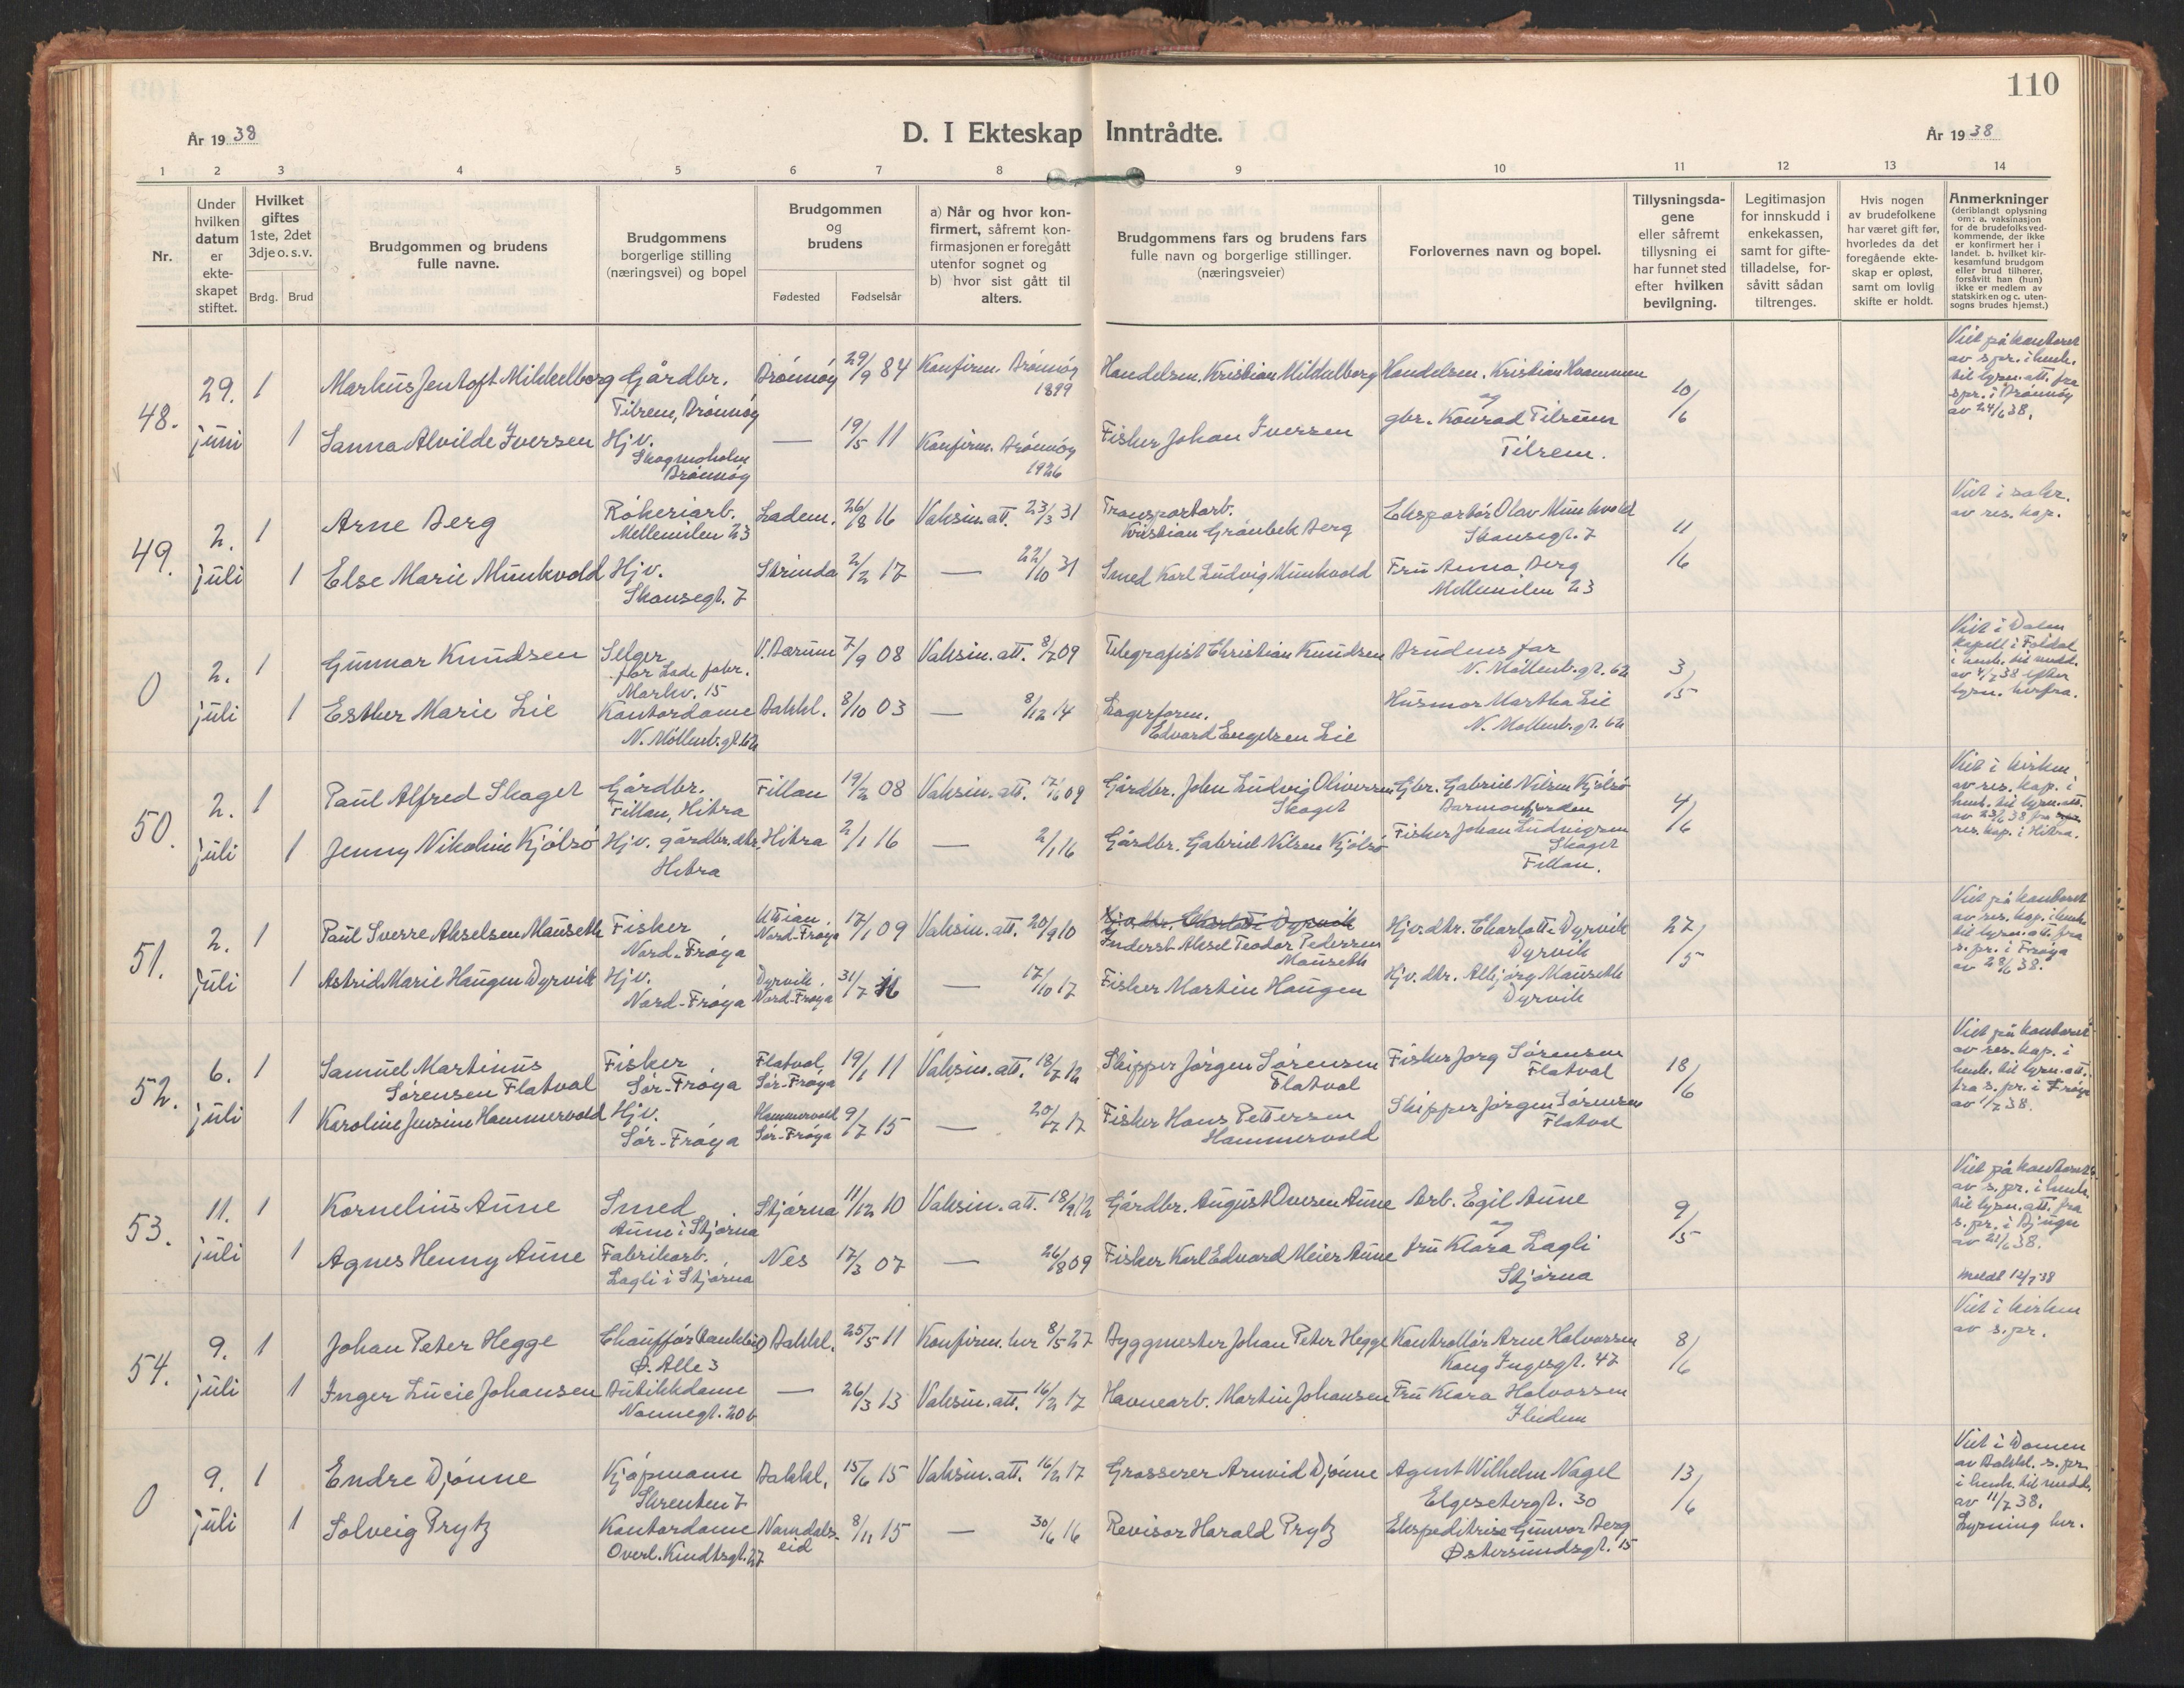 110
År 1938
D. I Ekteskap Inntrådte.
År 1938
1 2 3 4 5 6 7 8 9 10 11 12 13 14
Nr.
Under hvilken datum er ekte-skapet stiftet.
Hvilket giftes 1ste, 2det 3dje o. s. v.
Brdg. Brud
Brudgommen og brudens fulle navne.
Brudgommens borgerlige stilling (næringsvei) og bopel
Brudgommen og brudens
Fødested Fødselsår
a) Når og hvor kon-firmert, såfremt kon-firmasjonen er foregått utenfor sognet og b) hvor sist gått til alters.
Brudgommens fars og brudens fars fulle navn og borgerlige stillinger. (næringsveier)
Forlovernes navn og bopel.
Tillysningsda-gene eller såfremt tillysning ei har funnet sted efter hvilken bevilgning.
Legitimasjon for innskudd i enkekassen, samt for gifte-tilladelse, for-såvitt sådan tiltrenges.
Hvis nogen av brudefolkene har været gift før, hvorledes da det foregående ekte-skap er opløst, samt om lovlig skifte er holdt.
Anmerkninger (deriblandt oplysning om: a. vaksinasjon for de brudefolks ved-kommende, der ikke er konfirmert her i landet. b. hvilket kir-kesamfund brudgom eller brud tilhører, forsåvitt han (hun) ikke er medlem av statskirken og c. uten-sogns brudes hjemst.)
48. 29. juni
1 Markus Jentoft Mikkelborg Gårdbr. Tilrem, Brønnøy Brønnøy 29/9 84 Konfirm. Brønnøy 1899 Handelsm. Kristian Mikkelborg Handelsm. Kristian Kvammen og
1 Sanna Alvilde Iversen Hjv. Skogmoholm Brønnøy — 19/5 11 Konfirm. Brønnøy 1926 Fisker Johan Iversen gbr. Konrad Tilrem Tilrem.
10/6
Viet på kontoret av s.pr. i henh. til lysn. att. fra spr. i Brønnøy av 24/6 38.
49. 2. juli
1 Arne Berg Røkeriarb. Mellemilen 23 Ladem. 26/8 16 Vaksin. att. 23/3 31 Transportarb. Kristian Grønbek Berg Ekspartør Olav Munkvold Skansegt. 7
1 Else Marie Munkvold Hjv. Skansegt. 7 Strinda 2/2 17 — 22/10 31 Smed Karl Ludvig Munkvold Fru Anna Berg Mellemilen 23
11/6
Viet i sakr. av res. kap.
0 2. juli
1 Gunnar Knudsen Selger for Lade fabr. Markv. 15 V. Bærum 7/9 08 Vaksin. att. 8/7 09 Telegrafist Christian Knudsen Brudens far N. Møllenb. gt. 62
1 Esther Marie Lie Kontordame N. Møllenb. gt. 62 Bakkl. 8/10 03 — 8/12 14 Lagerform. Edvard Engelsen Lie Husmor Martha Lie N. Møllenb. gt. 62
3/5
Viet i Dalen kapell i Folldal i henh. til medd. av 4/7 38 efter lysn. herfra.
50. 2. juli
1 Paul Alfred Skaget Gårdbr. Fillan, Hitra Fillan 19/2 08 Vaksin. att. 17/6 09 Gårdbr. John Ludvig Oliversen Skaget Gbr. Gabriel Nilsen Kjølsø Barmanfjorden
1 Jenny Nikoline Kjølsø Hjv. gårdbr. dtr. Hitra Hitra 2/1 16 — 2/1 16 Gårdbr. Gabriel Nilsen Kjølsø Fisker Johan Ludvigsen Skaget Fillan.
4/6
Viet i kirken av res. kap. i henh. til lysn. att. av 23/6 38 fra res. kap. i Hitra.
51. 2. juli
1 Paul Sverre Akselsen Mauseth Fisker Nord-Frøya Uttian. Nord-Frøya 17/1 09 Vaksin. att. 20/9 10 Hjv. dtr. Charlotte Dyrvik Inderst Aksel Teodor Pedersen Mauseth Hjv. dtr. Charlotte Dyrvik Dyrvik
1 Astrid Marie Haugen Dyrvik Hjv. Nord-Frøya Dyrvik, Nord-Frøya 31/7 16 — 17/10 17 Fisker Martin Haugen Hjv. dtr. Albjørg Mauseth Dyrvik
27/5
Viet på kontoret av res. kap. i henh. til lysn. att. fra s. pr. i Frøya av 28/6 38.
52. 6. juli
1 Samuel Martinus Sørensen Flatval Fisker Sør-Frøya Flatval, Sør-Frøya 19/1 11 Vaksin. att. 18/7 12 Skipper Jørgen Sørensen Flatval Fisker Jorg Sørensen Flatval
1 Karoline Jensine Hammervold Hjv. Sør-Frøya Hammervold Sør-Frøya 9/7 15 — 20/7 17 Fisker Hans Pettersen Hammervold Skipper Jørgen Sørensen Flatval
18/6
Viet på kontoret av res. kap. i henh. til lysn. att. fra s. pr. i Frøya av 1/7 38.
53. 11. juli
1 Kornelius Aune Smed Aune i Stjørna Stjørna 11/12 10 Vaksin. att. 18/9 12 Gårdbr. August Ovesen Aune Arb. Egil Aune og
1 Agnes Henny Aune Fabrikarb. Lagli i Stjørna Nes 17/3 07 — 26/8 09 Fisker Karl Edvard Meier Aune fru Klara Lagli Stjørna
9/5
Viet på kontoret av s. pr. i henh. til lysn. att. fra s. pr. i Bjugn av 21/6 38.
meldt 12/7 38
54. 9. juli
1 Johan Peter Hegge Chauffør Ø. Alle 3 Bakkl. 25/5 11 Konfirm. her 8/5 27 Byggmester Johan Peter Hegge Kontrollør Arne Halvorsen Kong Ingesgt. 47
1 Inger Lucie Johansen Butikkdame Nonnegt. 20b — 26/3 13 Vaksin. att. 16/2 17 Havnearb. Martin Johansen Fru Klara Halvorsen
8/6
Viet i kirken av s. pr.
0 9. juli
1 Endre Djønne Kjøpmann Skrenten 7 Bakkl. 15/6 15 Vaksin. att. 16/2 17 Grosserer Arnvid Djønne Agent Wilhelm Nagel Elgesetergt. 30
1 Solveig Prytz Kontordame Overl. Kindtsgt. 27 Namdals-eid 8/11 15 — 30/6 16 Revisor Harald Prytz Ekspeditrise Gunvor Berg Østersundsgt. 15
13/6
Viet i Domen av Bakkl. s. pr. i henh. til medd. av 11/7 38. Lysning her.